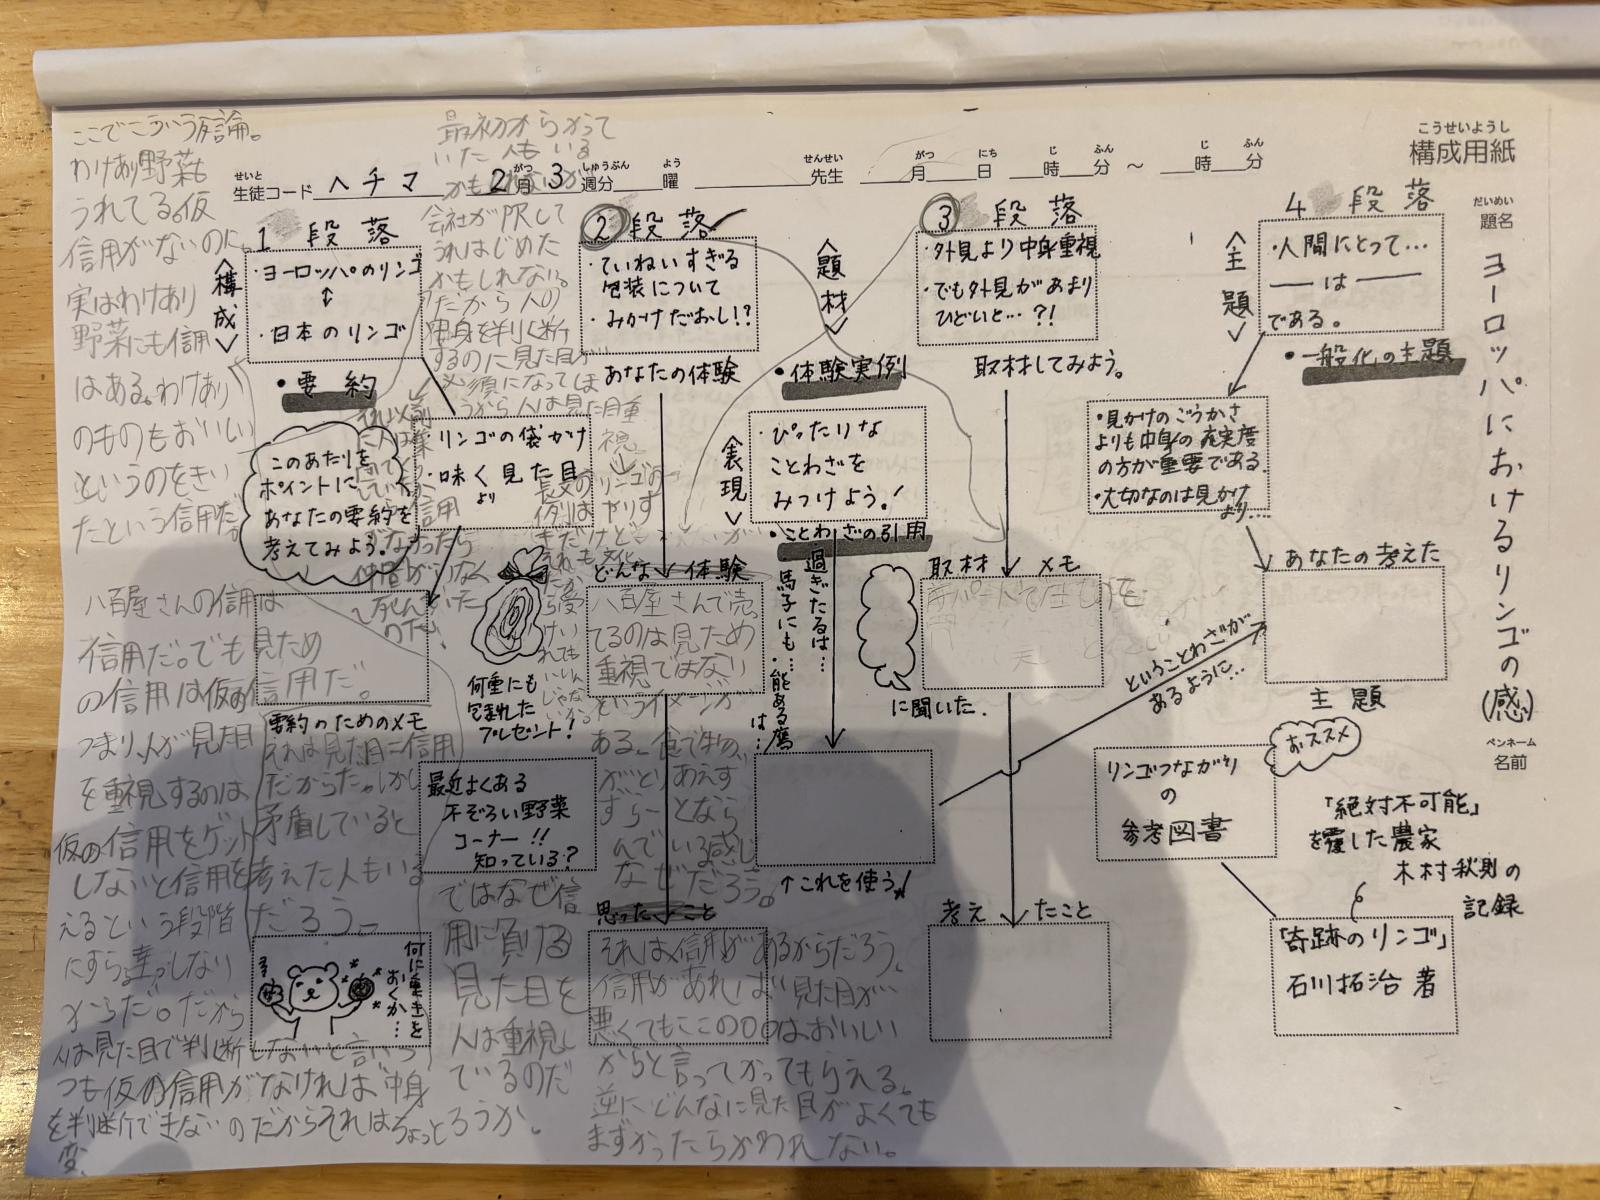 こうせいようし
構成用紙
せいと
生徒コード ヘチマ 2月 3週分 曜 先生 月 日 時 分 ～ 時 分
がつ しゅうぶん よう せんせい がつ にち じ ふん じ ふん
だいめい
題名
ヨーロッパにおけるリンゴの(感)
ペンネーム
名前
1 段落
＜構成＞
・ヨーロッパのリンゴ
↕
・日本のリンゴ
・要約
このあたりを
ポイントに
あなたの要約を
考えてみよう。
・リンゴの袋がけ
・味より見た目
要約のためのメモ
何重にも
包まれた
プレゼント！
最近よくある
不ぞろい野菜
コーナー!!
知っている？
何に重きを
おくか…
② 段落
・ていねいすぎる
包装について
・みかけだおし!?
あなたの体験
どんな 体験
思った こと
＜題材＞
・体験実例
＜表現＞
・ぴったりな
ことわざを
みつけよう！
・ことわざの引用
・過ぎたるは…
・馬子にも…
・能ある鷹は…
↑これを使う
③ 段落
・外見より中身重視
・でも外見があまり
ひどいと…?!
取材してみよう。
取材 メモ
に聞いた.
考え たこと
ということわざが
あるように…
4 段落
＜主題＞
・人間にとって…
── は ──
である。
・一般化の主題
・見かけのごうかさ
よりも中身の充実度
の方が重要である.
・大切なのは見かけ
より…
あなたの考えた
主題
おススメ
リンゴつながり
の
参考図書
「絶対不可能」
を覆した農家
木村秋則の
記録
「奇跡のリンゴ」
石川拓治 著
ここでこういう反論。
わけあり野菜も
うれてる。仮
信用がないのに。
実はわけあり
野菜にも信用
はある。わけあり
のものもおいしい
というのをきい
たという信用だ。
八百屋さんの信用は
信用だ。でも見ため
の信用は仮の信用だ。
つまり、人が見た目
を重視するのは
仮の信用をゲット
しないと信用を考
えるという段階
にすら達しない
からだ。だから
人は見た目で判断しないと言いつ
つも仮の信用がなければ中身
を判断できないのだからそれはちょっと
変。
最初からかって
いた人もいる
かもしれないが
会社がPRして
うれはじめた
かもしれない。
だから人の
中身を判断
するのに見た目が
必須になってしま
うから人は見た目重
視。
それは見た目に信用
だからだ。しかし
矛盾していると
考えた人もいる
だろう。
ではなぜ信
用に負ける
見た目を
人は重視し
ているのだ
ろうか。
八百屋さんで売っ
てるのは見ため
重視ではない
というイメージが
ある。食べ物
がとりあえず
ずらーとなら
んでいる感じ
なぜだろう。
それは信用があるからだろう。
信用があれば見た目が
悪くてもここの○○はおいしい
からと言ってかってもらえる。
逆にどんなに見た目がよくても
まずかったらかわれない。